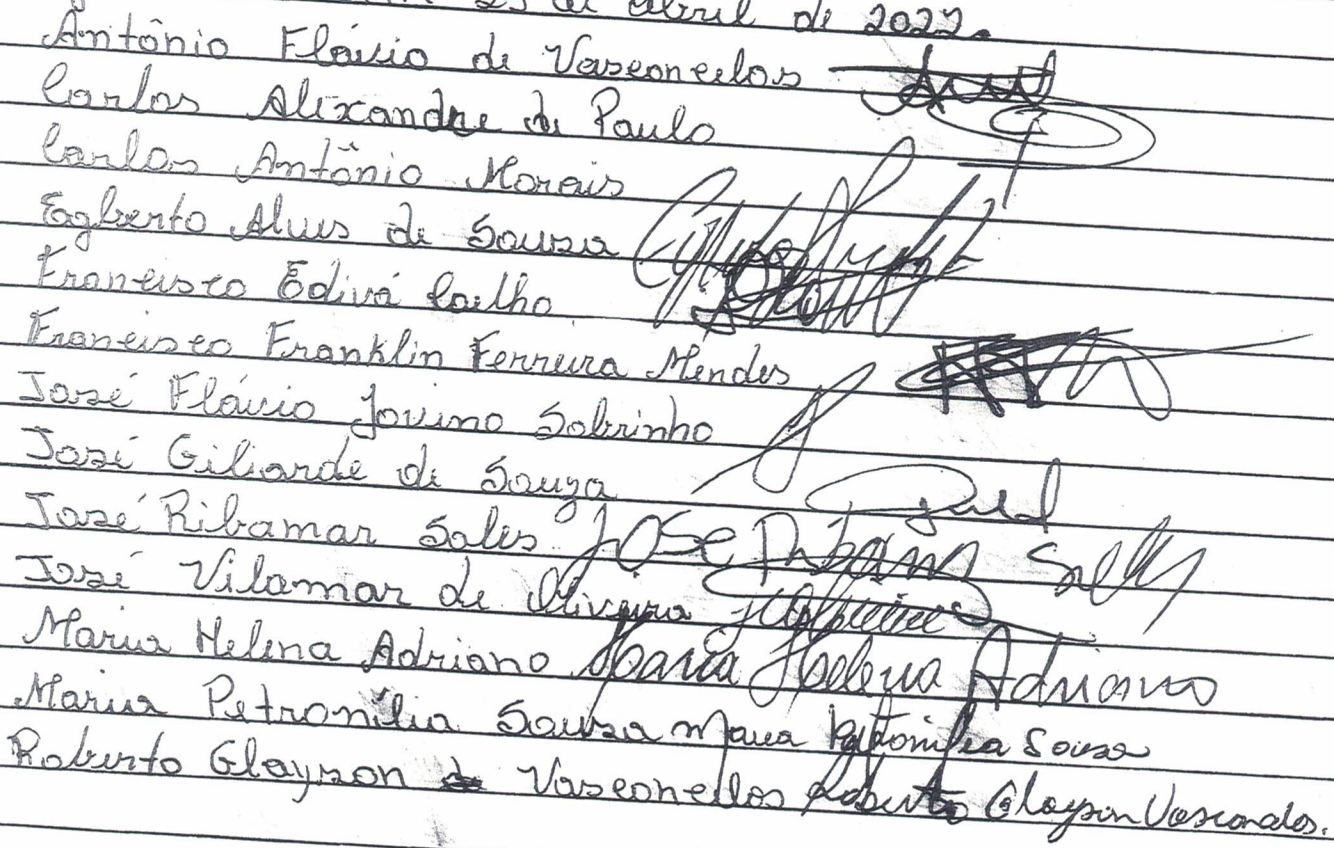 de abril de 2022.
Antônio Flávio de Vasconcelos
Carlos Alexandre de Paulo
Carlos Antônio Morais
Egberto Alves de Souza
Francisco Edivá Coelho
Francisco Franklin Ferreira Mendes
José Flávio Jovino Sobrinho
José Giliarde de Souza
José Ribamar Sales José Ribamar Sales
José Vilamar de Oliveira
Maria Helena Adriano Maria Helena Adriano
Maria Petronília Souza Maria Petronilia Souza
Roberto Glayson de Vasconcellos Roberto Glayson Vasconcelos.